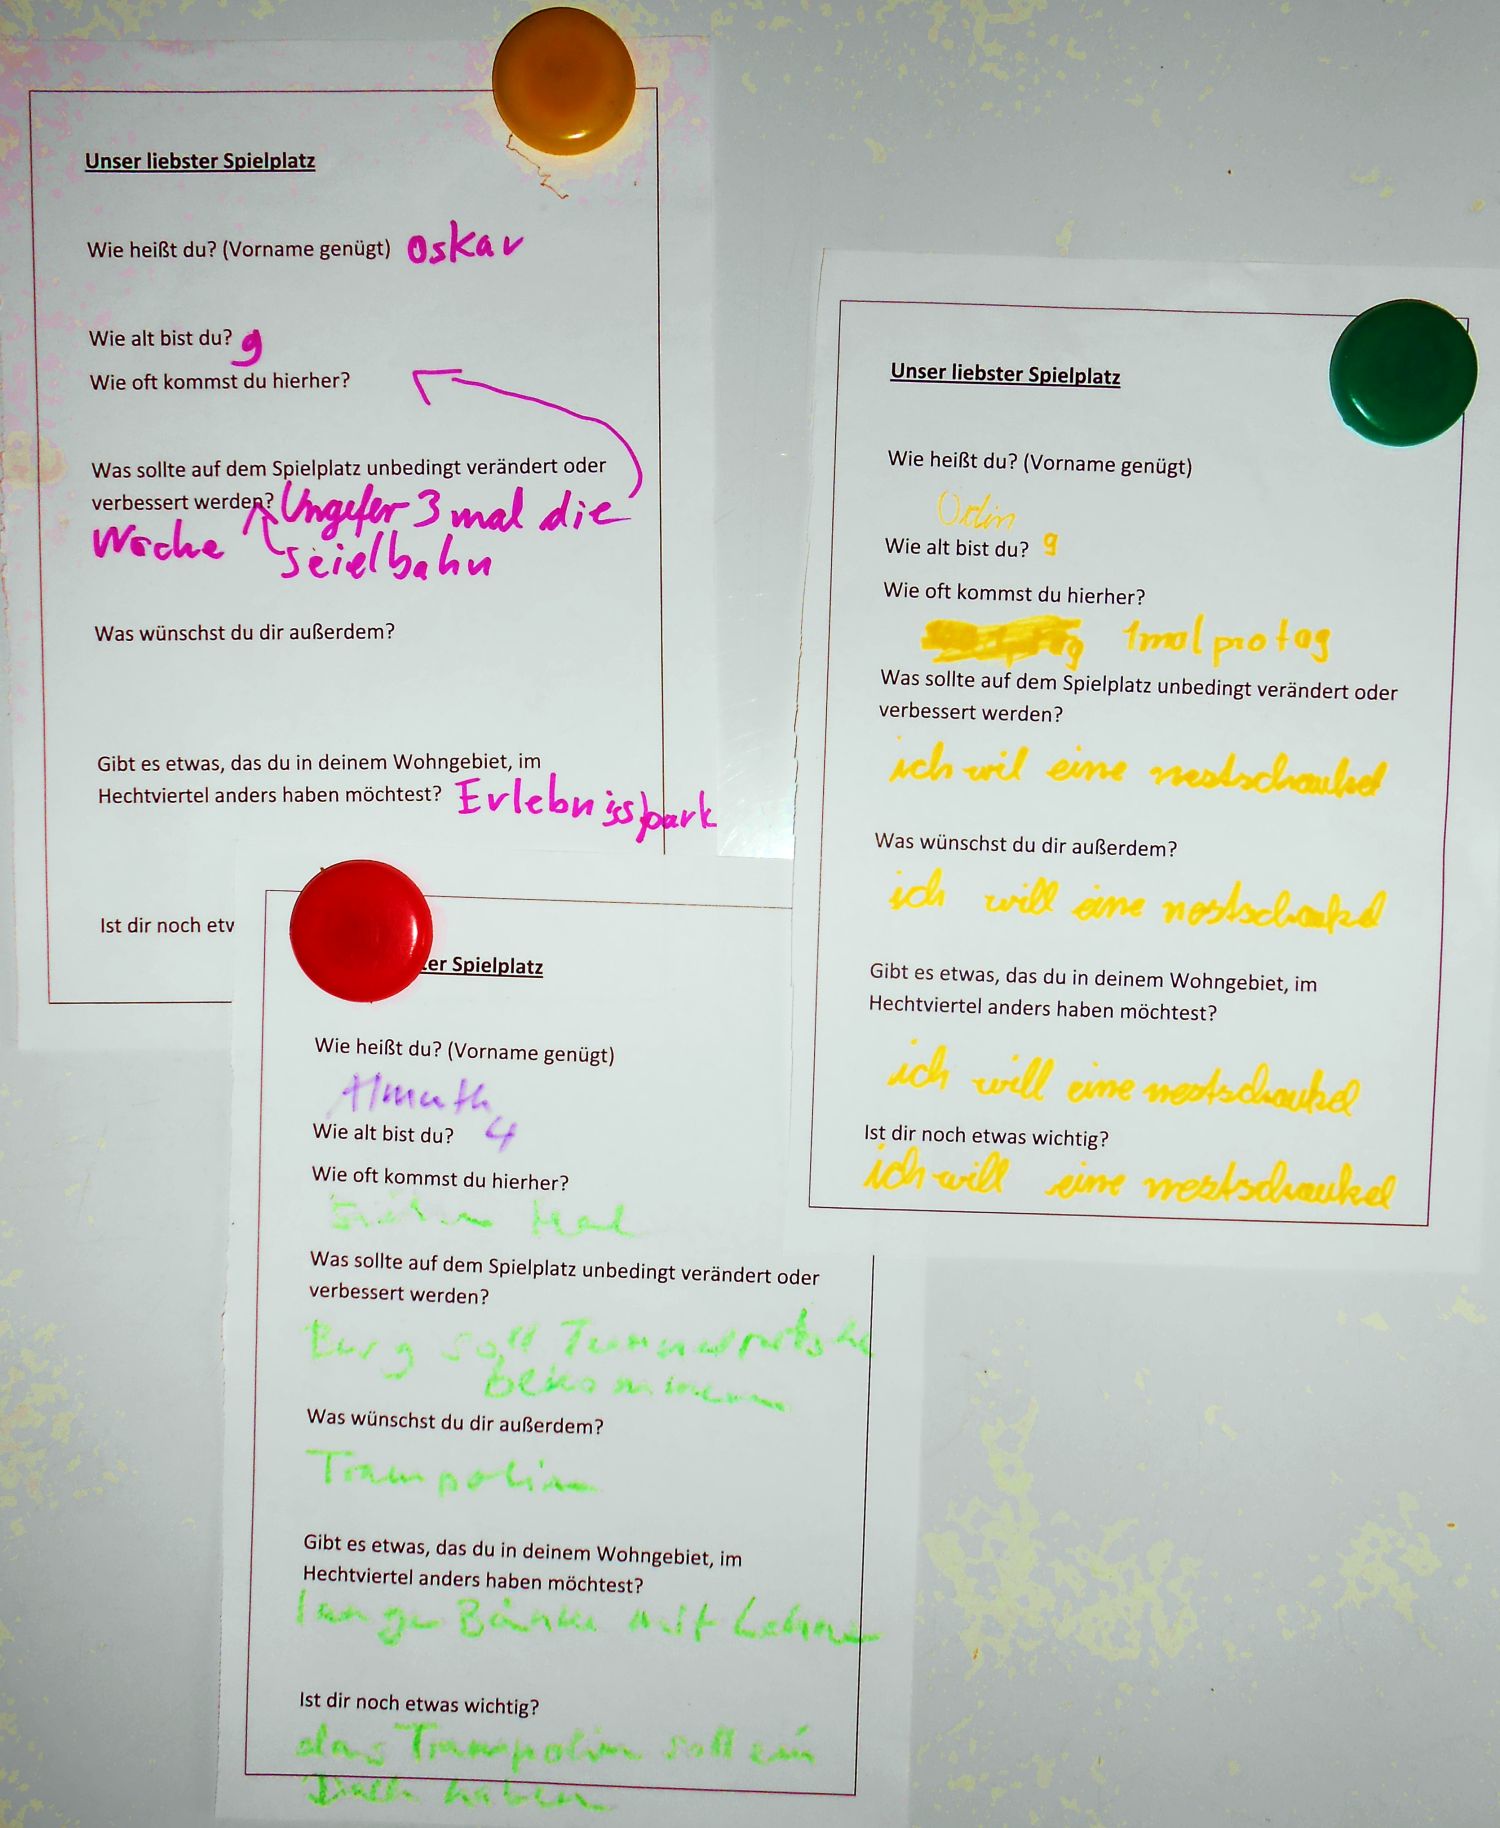 Unser liebster Spielplatz
Wie heißt du? (Vorname genügt) Oskar
Wie alt bist du? 9
Wie oft kommst du hierher?
Was sollte auf dem Spielplatz unbedingt verändert oder
verbessert werden? Ungefer 3 mal die
Woche seielbahn
Was wünschst du dir außerdem?
Gibt es etwas, das du in deinem Wohngebiet, im
Hechtviertel anders haben möchtest? Erlebnisspark
Ist dir noch etw
Unser liebster Spielplatz
Wie heißt du? (Vorname genügt)
Wie alt bist du? 9
Wie oft kommst du hierher?
1mal pro tag
Was sollte auf dem Spielplatz unbedingt verändert oder
verbessert werden?
ich wil eine nestschaukel
Was wünschst du dir außerdem?
ich will eine nestschaukel
Gibt es etwas, das du in deinem Wohngebiet, im
Hechtviertel anders haben möchtest?
ich will eine nestschaukel
Ist dir noch etwas wichtig?
ich will eine nestschaukel
ter Spielplatz
Wie heißt du? (Vorname genügt)
Almuth
Wie alt bist du? 4
Wie oft kommst du hierher?
Mal
Was sollte auf dem Spielplatz unbedingt verändert oder
verbessert werden?
Burg soll Tunnelrutsche
bekommen
Was wünschst du dir außerdem?
Trampolin
Gibt es etwas, das du in deinem Wohngebiet, im
Hechtviertel anders haben möchtest?
lange Bänke mit Lehne
Ist dir noch etwas wichtig?
das Trampolin soll ein
Dach haben